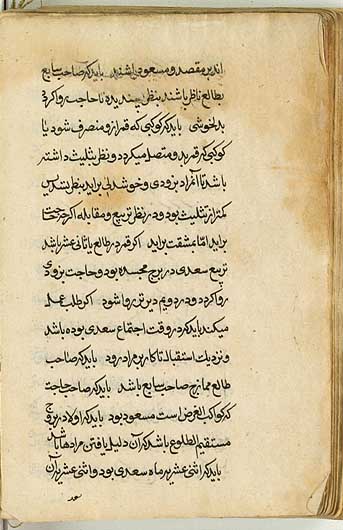 اندرین مقصد و مسعود باشند باید که صاحب سابع
بطالع ناظر باشند بنظر پسندیده تا حاجت روا گردد
بدلخوشی باید کوکبی که قمر از و منصرف شود یا
کوکبی که قمر بدو متصل میگردد و نظر تثلیث داشته
باشد تا آنمراد بزودی و خوشدلی براید بنظر تسدیس
کمتر از تثلیث بود و در نظر تربیع و مقابله اگر حاجت
براید اما بمشقت براید اگر قمر در طالع یا ثانی عشر باشد
تربیع سعدی در برج مجسده بود و حاجت بزودی
روا گردد و در دویم دیرتر روا شود اگر طلب عمل
میکند باید که در وقت اجتماع سعدی بوده باشد
و نزدیک استقبال تا کار بر مراد رود باید که صاحب
طالع ممازج صاحب سابع باشد باید که صاحب حاجت
که کواکب الغرض است مسعود بود باید که اولاد در بروج
مستقیم الطلوع باشد که آن دلیل یافتن مرادها باشد
باید که اثنی عشریه ماه سعدی بود و اثنی عشریه آن